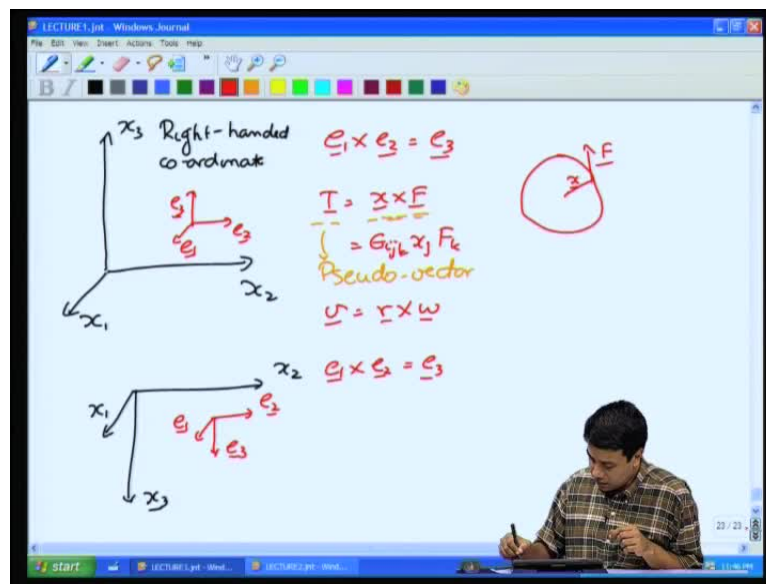 LECTURE1.jnt - Windows Journal
File Edit View Insert Actions Tools Help
B I
x3 Right-handed
co-ordinate
e3
e2
e1
x2
x1
e1 x e2 = e3
T = x x F
= ϵijk xj Fk
Pseudo-vector
v = r x w
F
x
x2
x1
x3
e2
e1
e3
e1 x e2 = e3
23 / 23
start
LECTURE1.jnt - Wind...
LECTURE2.jnt - Wind...
11:46 PM